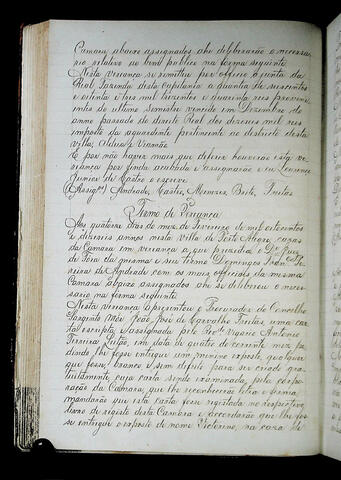 Camara abaixo assignados ahi deliberarão o necessa-
rio relativo ao bem publico na forma seguinte
Nesta vereança se remetteu por officio á junta da
Real Fazenda desta capitania a quantia de seiscentos
e oitenta e tres mil trezentos e quarenta reis provenien-
tes do ultimo semestre vencido em Dezembro do
anno passado do direito Real dos dizeseis mil reis
imposto da aguardente pertencente ao districto desta
villa, Aldeia e Viamão
E por não haver mais que deferir houverão esta ve-
riança por finda acabada e assignarão e eu
Junior de Castro o escrevi.
(Assigos) Andrade, Castro, Menezes, Brito, Freitas
Termo de Veriança
Aos quatorze dias do mez de Fevereiro de mil oitocentos
e dizeseis annos nesta villa de Porto Alegre, casas
da Camara em veriança a que presidio o Dr. Juiz
de Fora da mesma e seu termo Domingos Francisco
de Andrade com os mais officiaes da mesma
Camara abaixo assignados ahi se deliberou o neces-
sario na forma seguinte
Nesta vereança apresentou o Procurador do Concelho
Sargento Mór João José de Carvalho Freitas uma car-
ta escripta e assignada pelo Revdo Vigario Antonio
Ferreira Leitão, em data de quatro do corrente mez, pe-
dindo lhe fosse entregue um menino exposto, qualquer
que fosse, branco e sem defeito para ser criado gra-
tuitamente cuja carta sendo examinada pela corpo-
ração da Camara, que lhe reconhecerão letra e firma
mandarão que esta carta fosse registada no respectivo
livro de registo desta Camara e accordarão que lhe fos-
se entregue o exposto de nome Victorino, na casa de